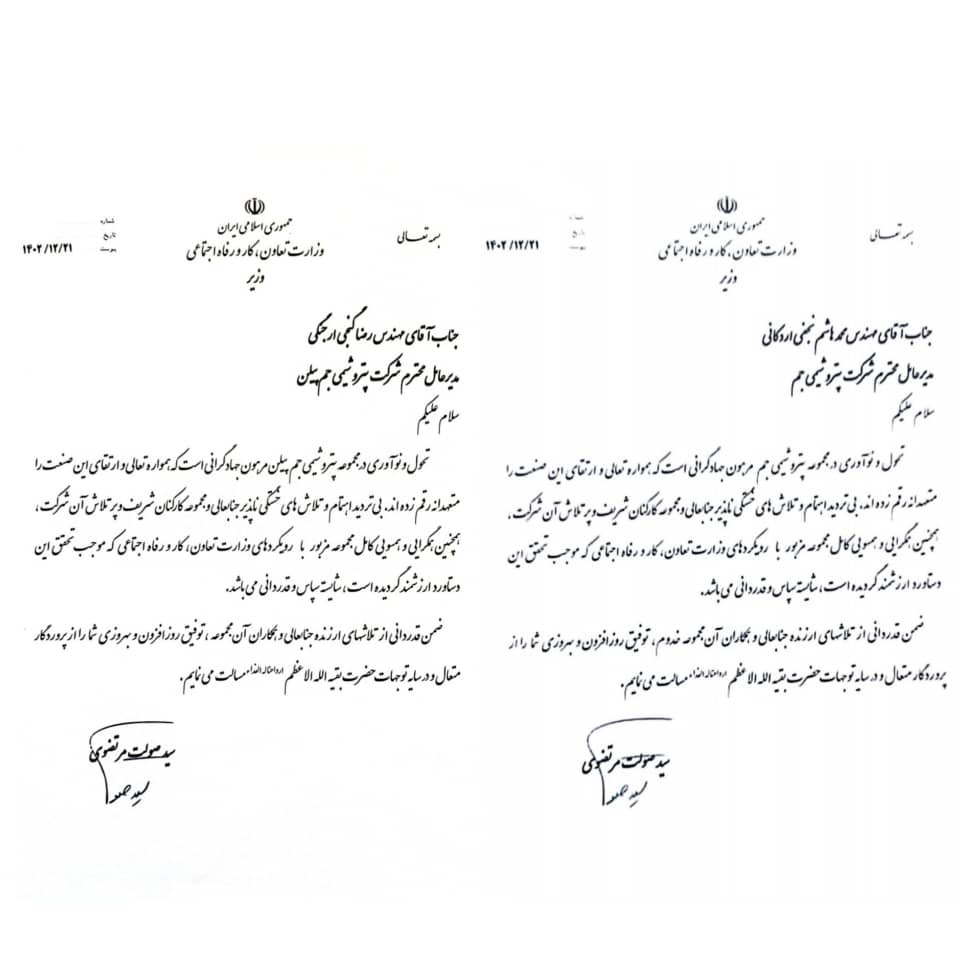 بسمه تعالی
جمهوری اسلامی ایران
وزارت تعاون، کار و رفاه اجتماعی
وزیر
شماره
تاریخ
پیوست
۱۴۰۲/۱۲/۲۱
جناب آقای مهندس محمد هاشم نجفی اردکانی
مدیرعامل محترم شرکت پتروشیمی جم
سلام علیکم
تحول و نوآوری در مجموعه پتروشیمی جم مرهون جهادگرانی است که همواره تعالی و ارتقای این صنعت را
متعهدانه رقم زده اند. بی تردید اهتمام و تلاش های خستگی ناپذیر جنابعالی و مجموعه کارکنان شریف و پرتلاش آن شرکت،
همچنین همگرایی و همسویی کامل مجموعه مزبور با رویکردهای وزارت تعاون، کار و رفاه اجتماعی که موجب تحقق این
دستاورد ارزشمند گردیده است، شایسته سپاس و قدردانی می باشد.
ضمن قدردانی از تلاشهای ارزنده جنابعالی و همکاران آن مجموعه خدوم، توفیق روزافزون و بهروزی شما را از
پروردگار متعال و در سایه توجهات حضرت بقیه الله الاعظم مسالت می نمایم.
سید صولت مرتضوی
بسمه تعالی
جمهوری اسلامی ایران
وزارت تعاون، کار و رفاه اجتماعی
وزیر
شماره
تاریخ
پیوست
۱۴۰۲/۱۲/۲۱
جناب آقای مهندس رضا گنجی ارجنکی
مدیرعامل محترم شرکت پتروشیمی جم پیلن
سلام علیکم
تحول و نوآوری در مجموعه پتروشیمی جم پیلن مرهون جهادگرانی است که همواره تعالی و ارتقای این صنعت را
متعهدانه رقم زده اند. بی تردید اهتمام و تلاش های خستگی ناپذیر جنابعالی و مجموعه کارکنان شریف و پرتلاش آن شرکت،
همچنین همگرایی و همسویی کامل مجموعه مزبور با رویکردهای وزارت تعاون، کار و رفاه اجتماعی که موجب تحقق این
دستاورد ارزشمند گردیده است، شایسته سپاس و قدردانی می باشد.
ضمن قدردانی از تلاشهای ارزنده جنابعالی و همکاران آن مجموعه، توفیق روزافزون و بهروزی شما را از پروردگار
متعال و در سایه توجهات حضرت بقیه الله الاعظم مسالت می نمایم.
سید صولت مرتضوی